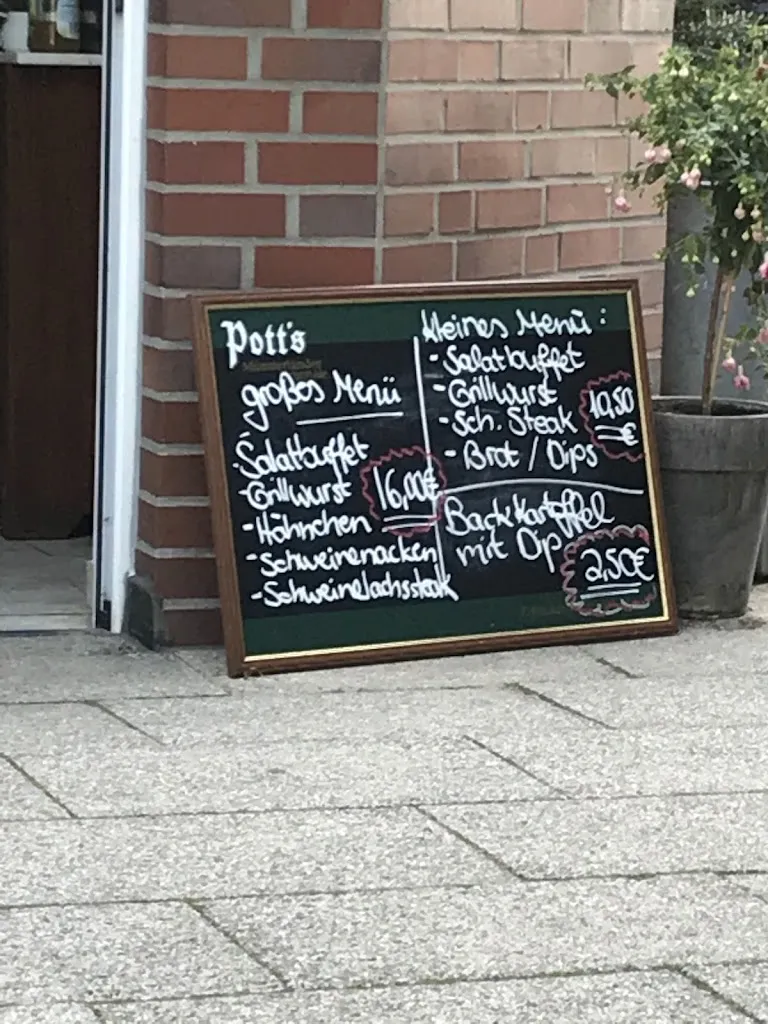 Pott's
großes Menü
- Salatbuffet
- Grillwurst
- Hähnchen
- Schweinenacken
- Schweinelachssteak
16,00€
kleines Menü :
- Salatbuffet
- Grillwurst
- Sch. Steak
- Brot / Dips
10,50
€
Back Kartoffel
mit Dip
2,50€